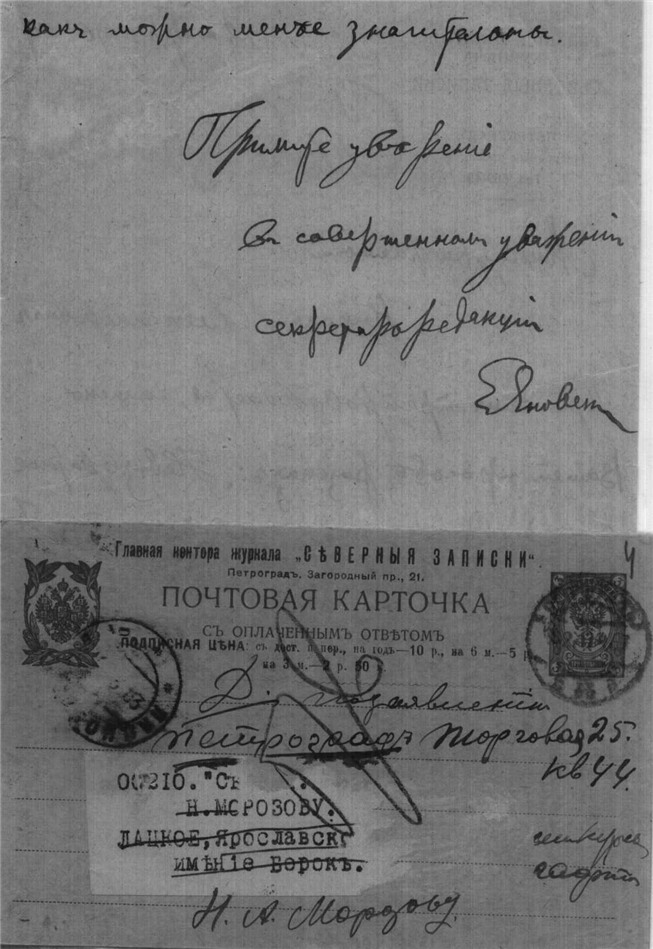 какъ можно менѣе
Примите увѣреніе
въ совершенномъ уваженіи
секретарь редакціи
4
Главная контора журнала „СѢВЕРНЫЯ ЗАПИСКИ“.
Петроградъ, Загородный пр., 21.
ПОЧТОВАЯ КАРТОЧКА
СЪ ОПЛАЧЕННЫМЪ ОТВѢТОМЪ
ПОДПИСНАЯ ЦѢНА: съ дост. и пер., на годъ—10 р., на 6 м.—5 р.
на 3 м.—2 р. 50
Петроградъ Торговая 25.
кв 44.
ОС210. "Сѣ
Н.МОРОЗОВУ.
ЛАЦКОЕ, Ярославск
имѣніе Борокъ.
Н. А. Морозову.